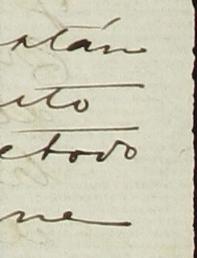 están
eto
etodo
ne